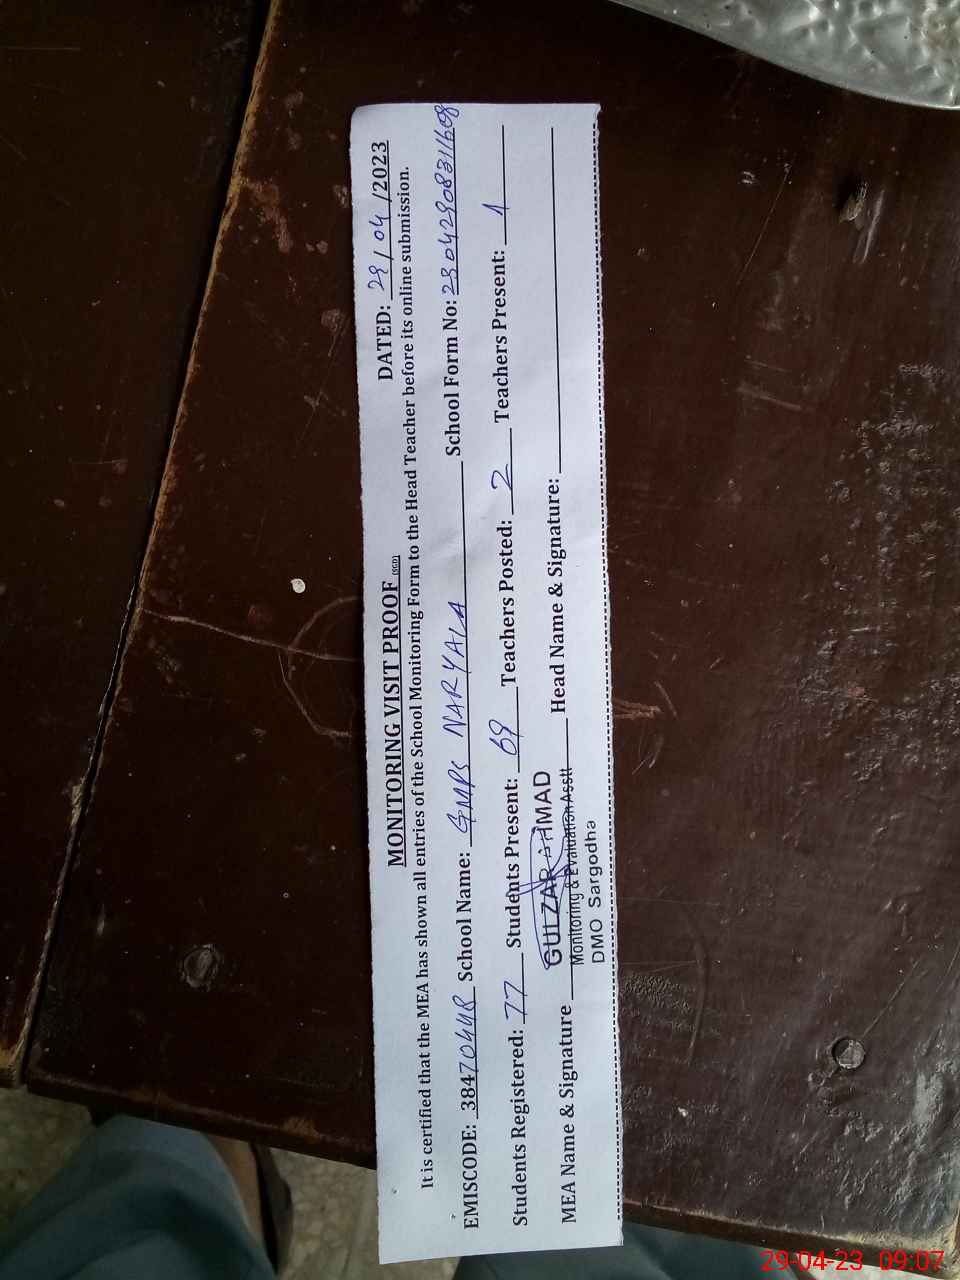 MONITORING VISIT PROOF (SGD)
DATED: 29/04/2023
It is certified that the MEA has shown all entries of the School Monitoring Form to the Head Teacher before its online submission.
EMISCODE: 38470448 School Name: GMPS NARYALA School Form No:
Students Registered: 77 Students Present: 69 Teachers Posted: 2 Teachers Present: 1
MEA Name & Signature Head Name & Signature:
GULZAR AHMAD
Monitoring & Evaluation Asstt
DMO Sargodha
29-04-23 09:07